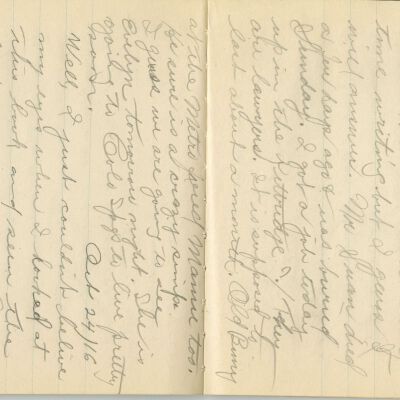 time writing but I guess I
will answer. Mr Swan died
a few days ago & was buried
Sunday. I got a job today
up in the Kittredge. They
are lawyers. It is supposed to
last about a month. Old Binny
at the and Mamie too.
He sure is a crazy simp.
I guess we are going to see
Evelyn tomorrow night. She is
going to Colo Spgs to live pretty
soon.
Oct 24/16
Well, I just couldn't believe
my eyes when I looked at
this book and seen the